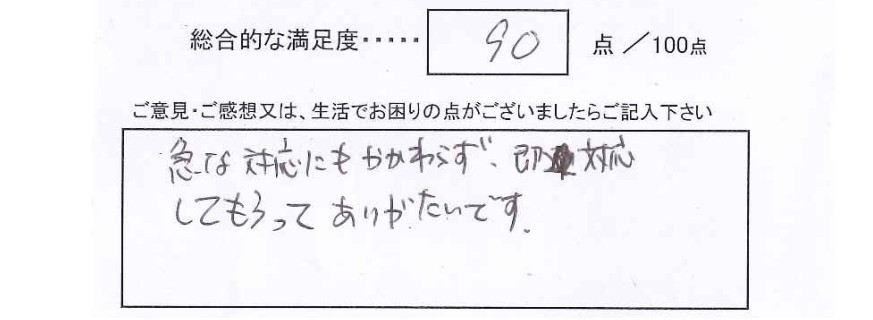 総合的な満足度・・・・・ 90 点 ／100点
ご意見・ご感想又は、生活でお困りの点がございましたらご記入下さい
急な対応にもかかわらず、即対応
してもらってありがたいです。